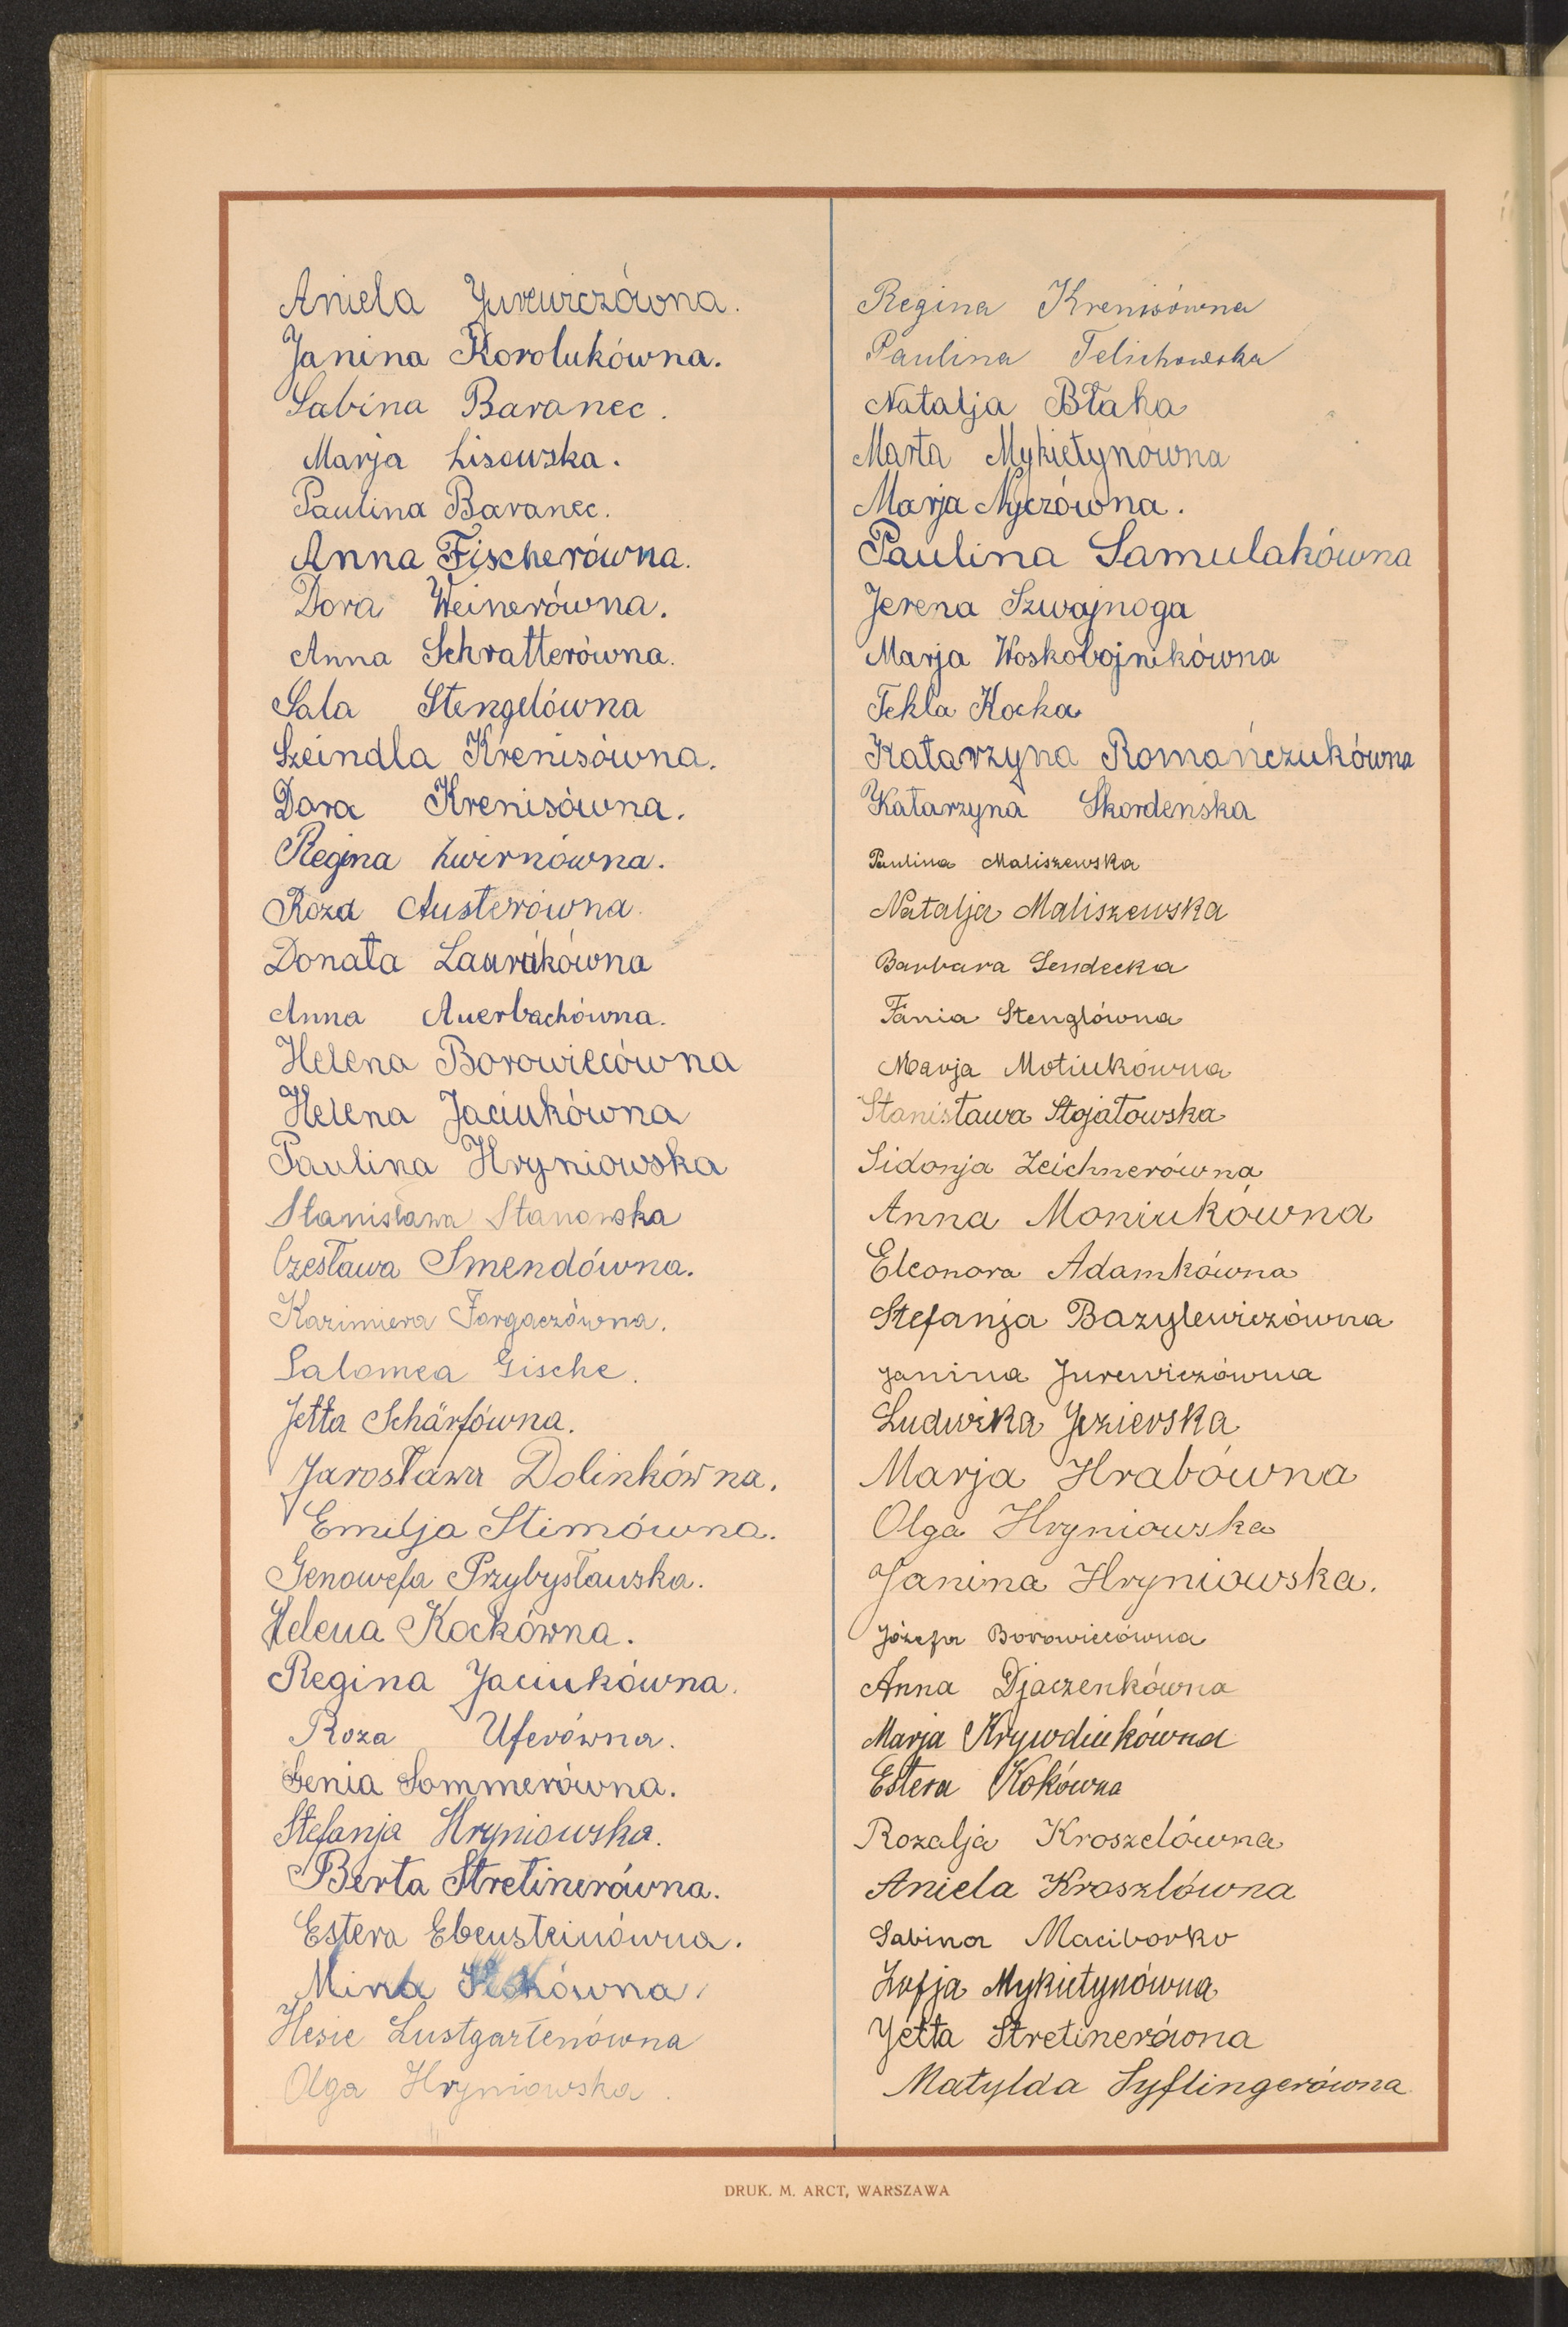 Aniela Jurewiczówna.
Janina Korolukówna.
Sabina Baranec.
Marja Lisowska.
Paulina Baranec.
Anna Fischerówna.
Dora Weinerówna.
Anna Schratterówna.
Sala Stengelówna
Szeindla Krenisówna.
Dora Krenisówna.
Regina Zwirnówna.
Roza Austerówna.
Donata Laurukówna
Anna Auerbachówna.
Helena Borowiecówna
Helena Jaciukówna
Paulina Hryniowska
Stanisława Stanowska
Czesława Smendówna.
Kazimiera Forgaczówna.
Salomea Gische.
Jetta Schärfówna.
Jarosława Dolinkówna.
Emilja Stimówna.
Genowefa Przybysławska.
Helena Kockówna.
Regina Jaciukówna.
Roza Uferówna.
Genia Sommerówna.
Stefanja Hryniowska.
Berta Stretinerówna.
Estera Ebensteinówna.
Mina Kokówna.
Hesie Lustgartenówna
Olga Hryniowska.
Regina Krenisówna
Paulina Telichowska
Natalja Błaha
Marta Mykietynówna
Marja Nyczówna.
Paulina Samulakówna
Jerena Szwajnoga
Marja Woskobojnikówna
Tekla Kocka
Katarzyna Romańczukówna
Katarzyna Skordenska
Paulina Maliszewska
Natalja Maliszewska
Barbara Sendecka
Fania Stenglówna
Marja Motiukówna
Stanisława Stojałowska
Sidonja Zeichnerówna
Anna Moniukówna
Eleonora Adamkówna
Stefanja Bazylewiczówna
Janina Jurewiczówna
Ludwika Jezierska
Marja Hrabówna
Olga Hryniowska
Janina Hryniowska.
Józefa Borowiecówna
Anna Djaczenkówna
Marja Krywdiukówna
Estera Kokówna
Rozalja Kroszelówna
Aniela Kroszlówna
Sabina Maciborko
Zofja Mykietynówna
Jetta Stretinerówna
Matylda Syflingerówna
DRUK. M. ARCT, WARSZAWA